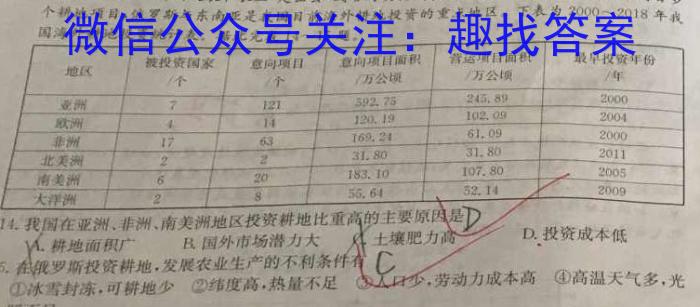 个耕地项目,俄罗斯、东南亚是我国目前海外耕地投资的重点地区。下表为2000—2018年我
微信公众号关注：趣找答案
地区 被投资国家/个 意向项目/个 意向项目面积/万公顷 营运项目面积/万公顷 最早投资年份/年
亚洲 7 121 592.75 245.89 2000
欧洲 4 14 120.19 102.09 2004
非洲 17 63 169.24 61.09 2000
北美洲 2 2 31.80 31.80 2011
南美洲 6 20 183.10 107.80 2005
大洋洲 2 8 55.64 52.14 2009
14.我国在亚洲、非洲、南美洲地区投资耕地比重高的主要原因是 D
A.耕地面积广 B.国外市场潜力大 C.土壤肥力高 D.投资成本低
5.在俄罗斯投资耕地,发展农业生产的不利条件有 C
①冰雪封冻,可耕地少 ②纬度高,热量不足 ③人口少,劳动力成本高 ④高温天气多,光